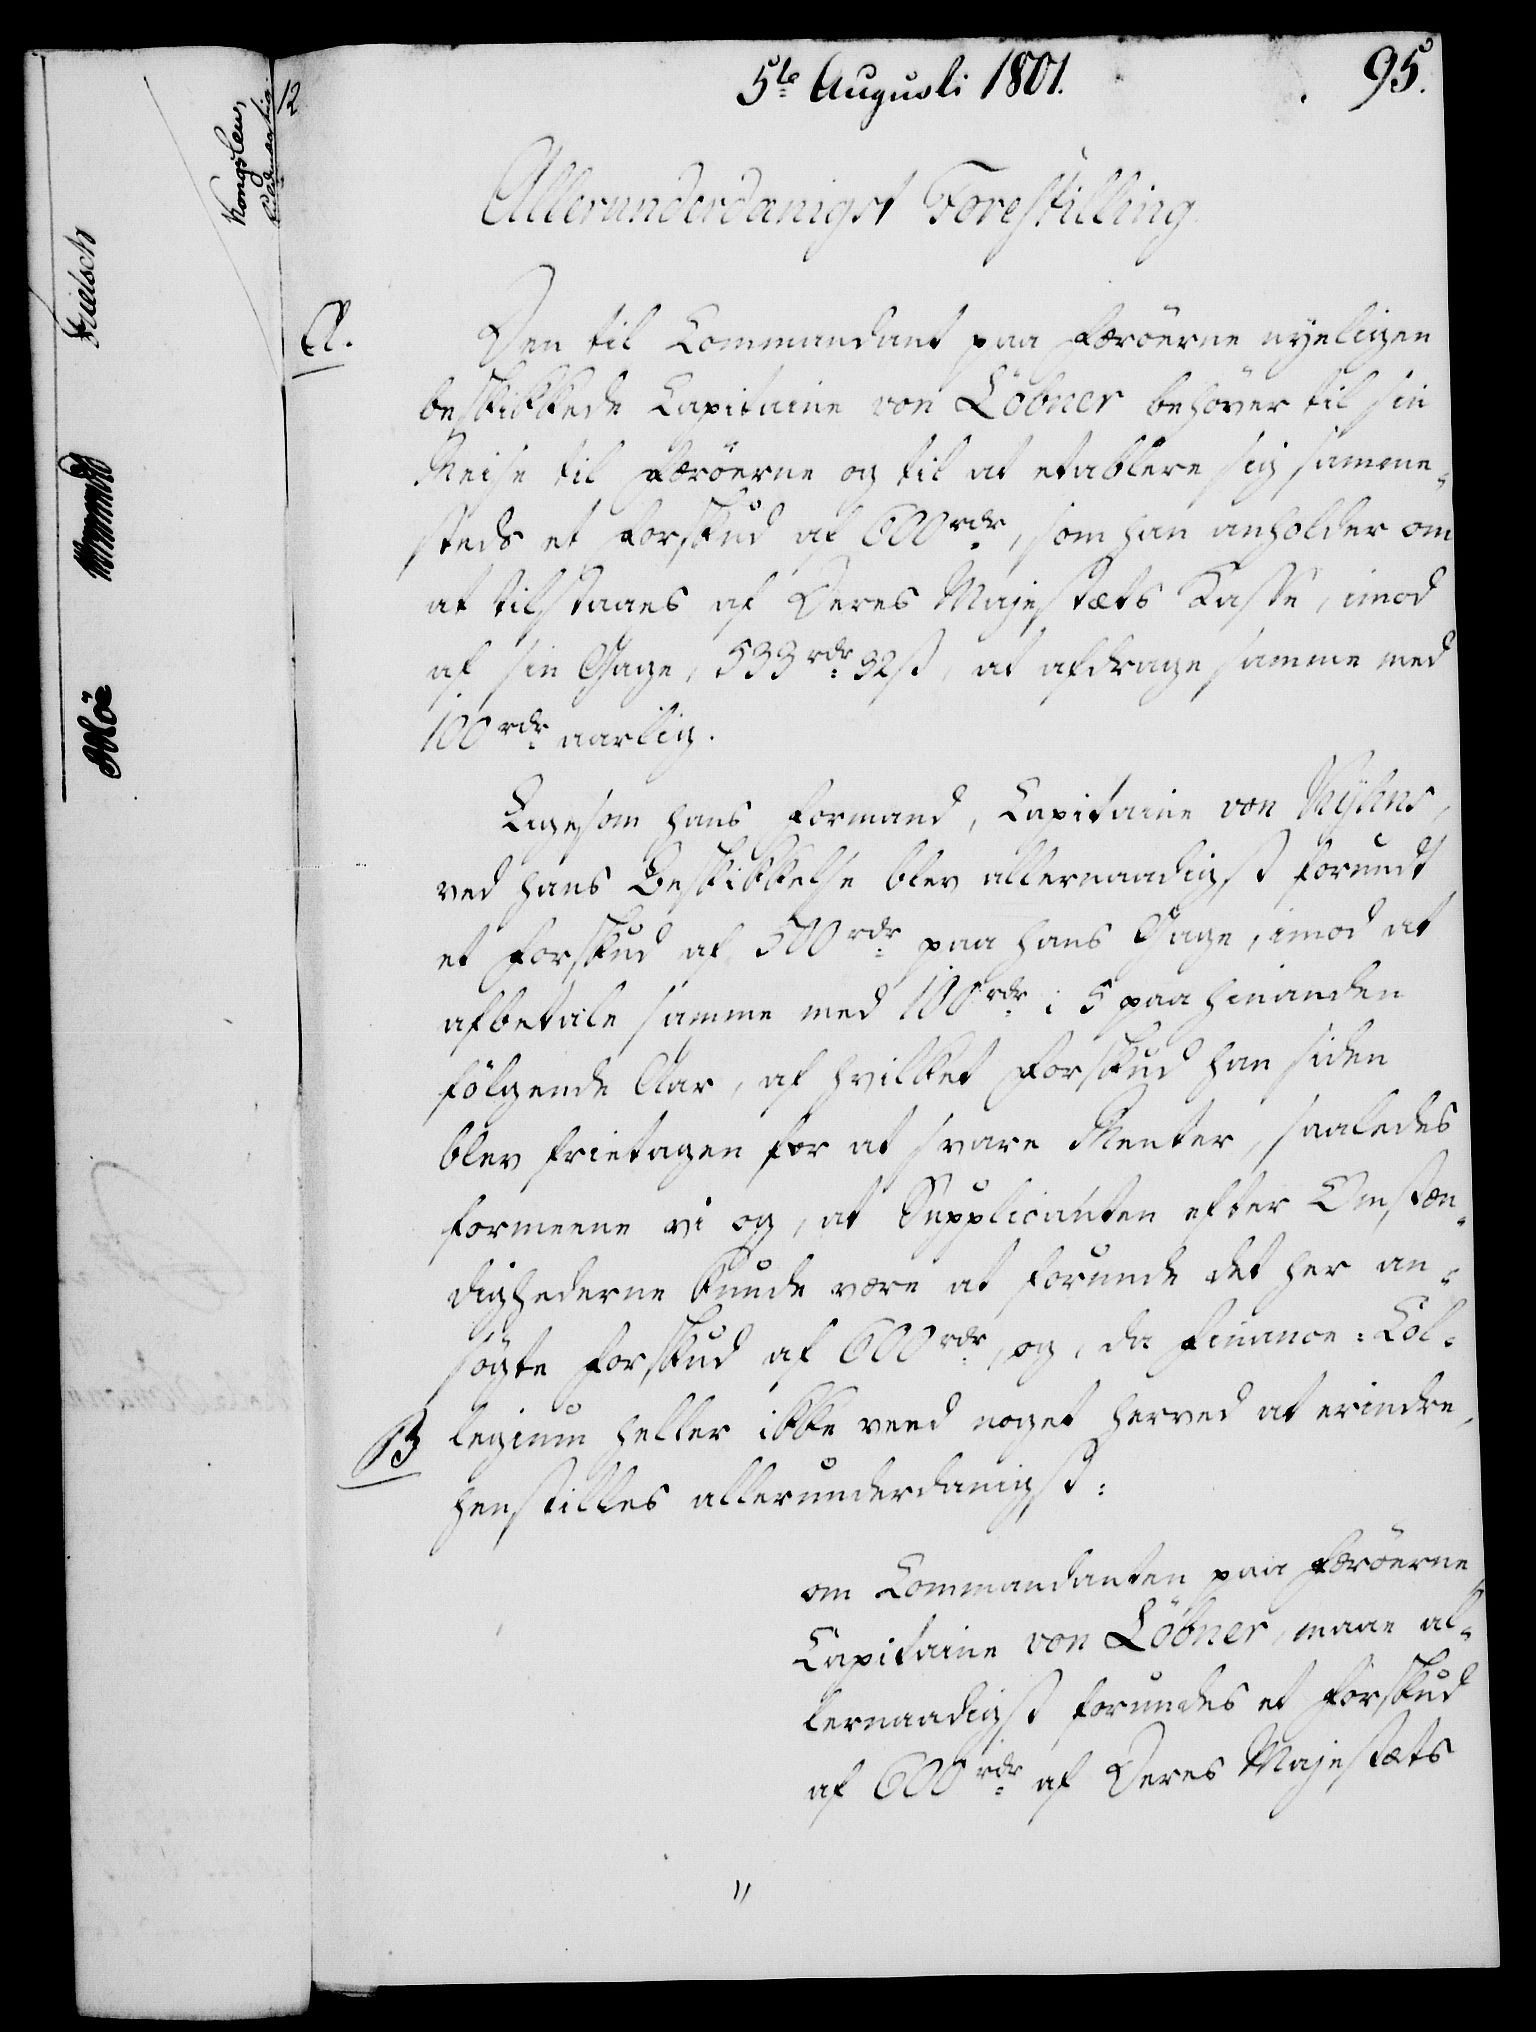 5te Augusti 1801.
95.
Allerunderdanigst Forestilling
A.
Den til Commandant paa Færöerne nyeligen
beskikkede Capitaine von Löbner behöver til sin
Reise til Færöerne og til at etablere sig samme-
steds et Forskud af 600 rdr, som han anholder om
at tilstaaes af Deres Majestæts Kasse, imod
af sin Gage, 533 rdr 32 ß, at afdrage samme med
100 rdr aarlig.
Ligesom hans Formand, Capitaine von
ved hans Beskikkelse blev allernaadigst forundt
et Forskud af 500 rdr paa hans Gage, imod at
afbetale samme med 100 rdr i 5 paa hinanden
fölgende Aar, af hvilket Forskud han siden
blev frietagen for at svare Renter, saaledes
formeene vi og, at Supplicanten efter Omstæn-
dighederne kunde være at forunde det her an-
sögte Forskud af 600 rdr, og, da Finance-Col-
B
legium heller ikke veed noget herved at erindre,
henstilles allerunderdanigst:
om Commandanten paa Færöerne
Capitaine von Löbner, maae al-
lernaadigst forundes et Forskud
af 600 rdr af Deres Majestæts
"
12
Fritsch
Möe